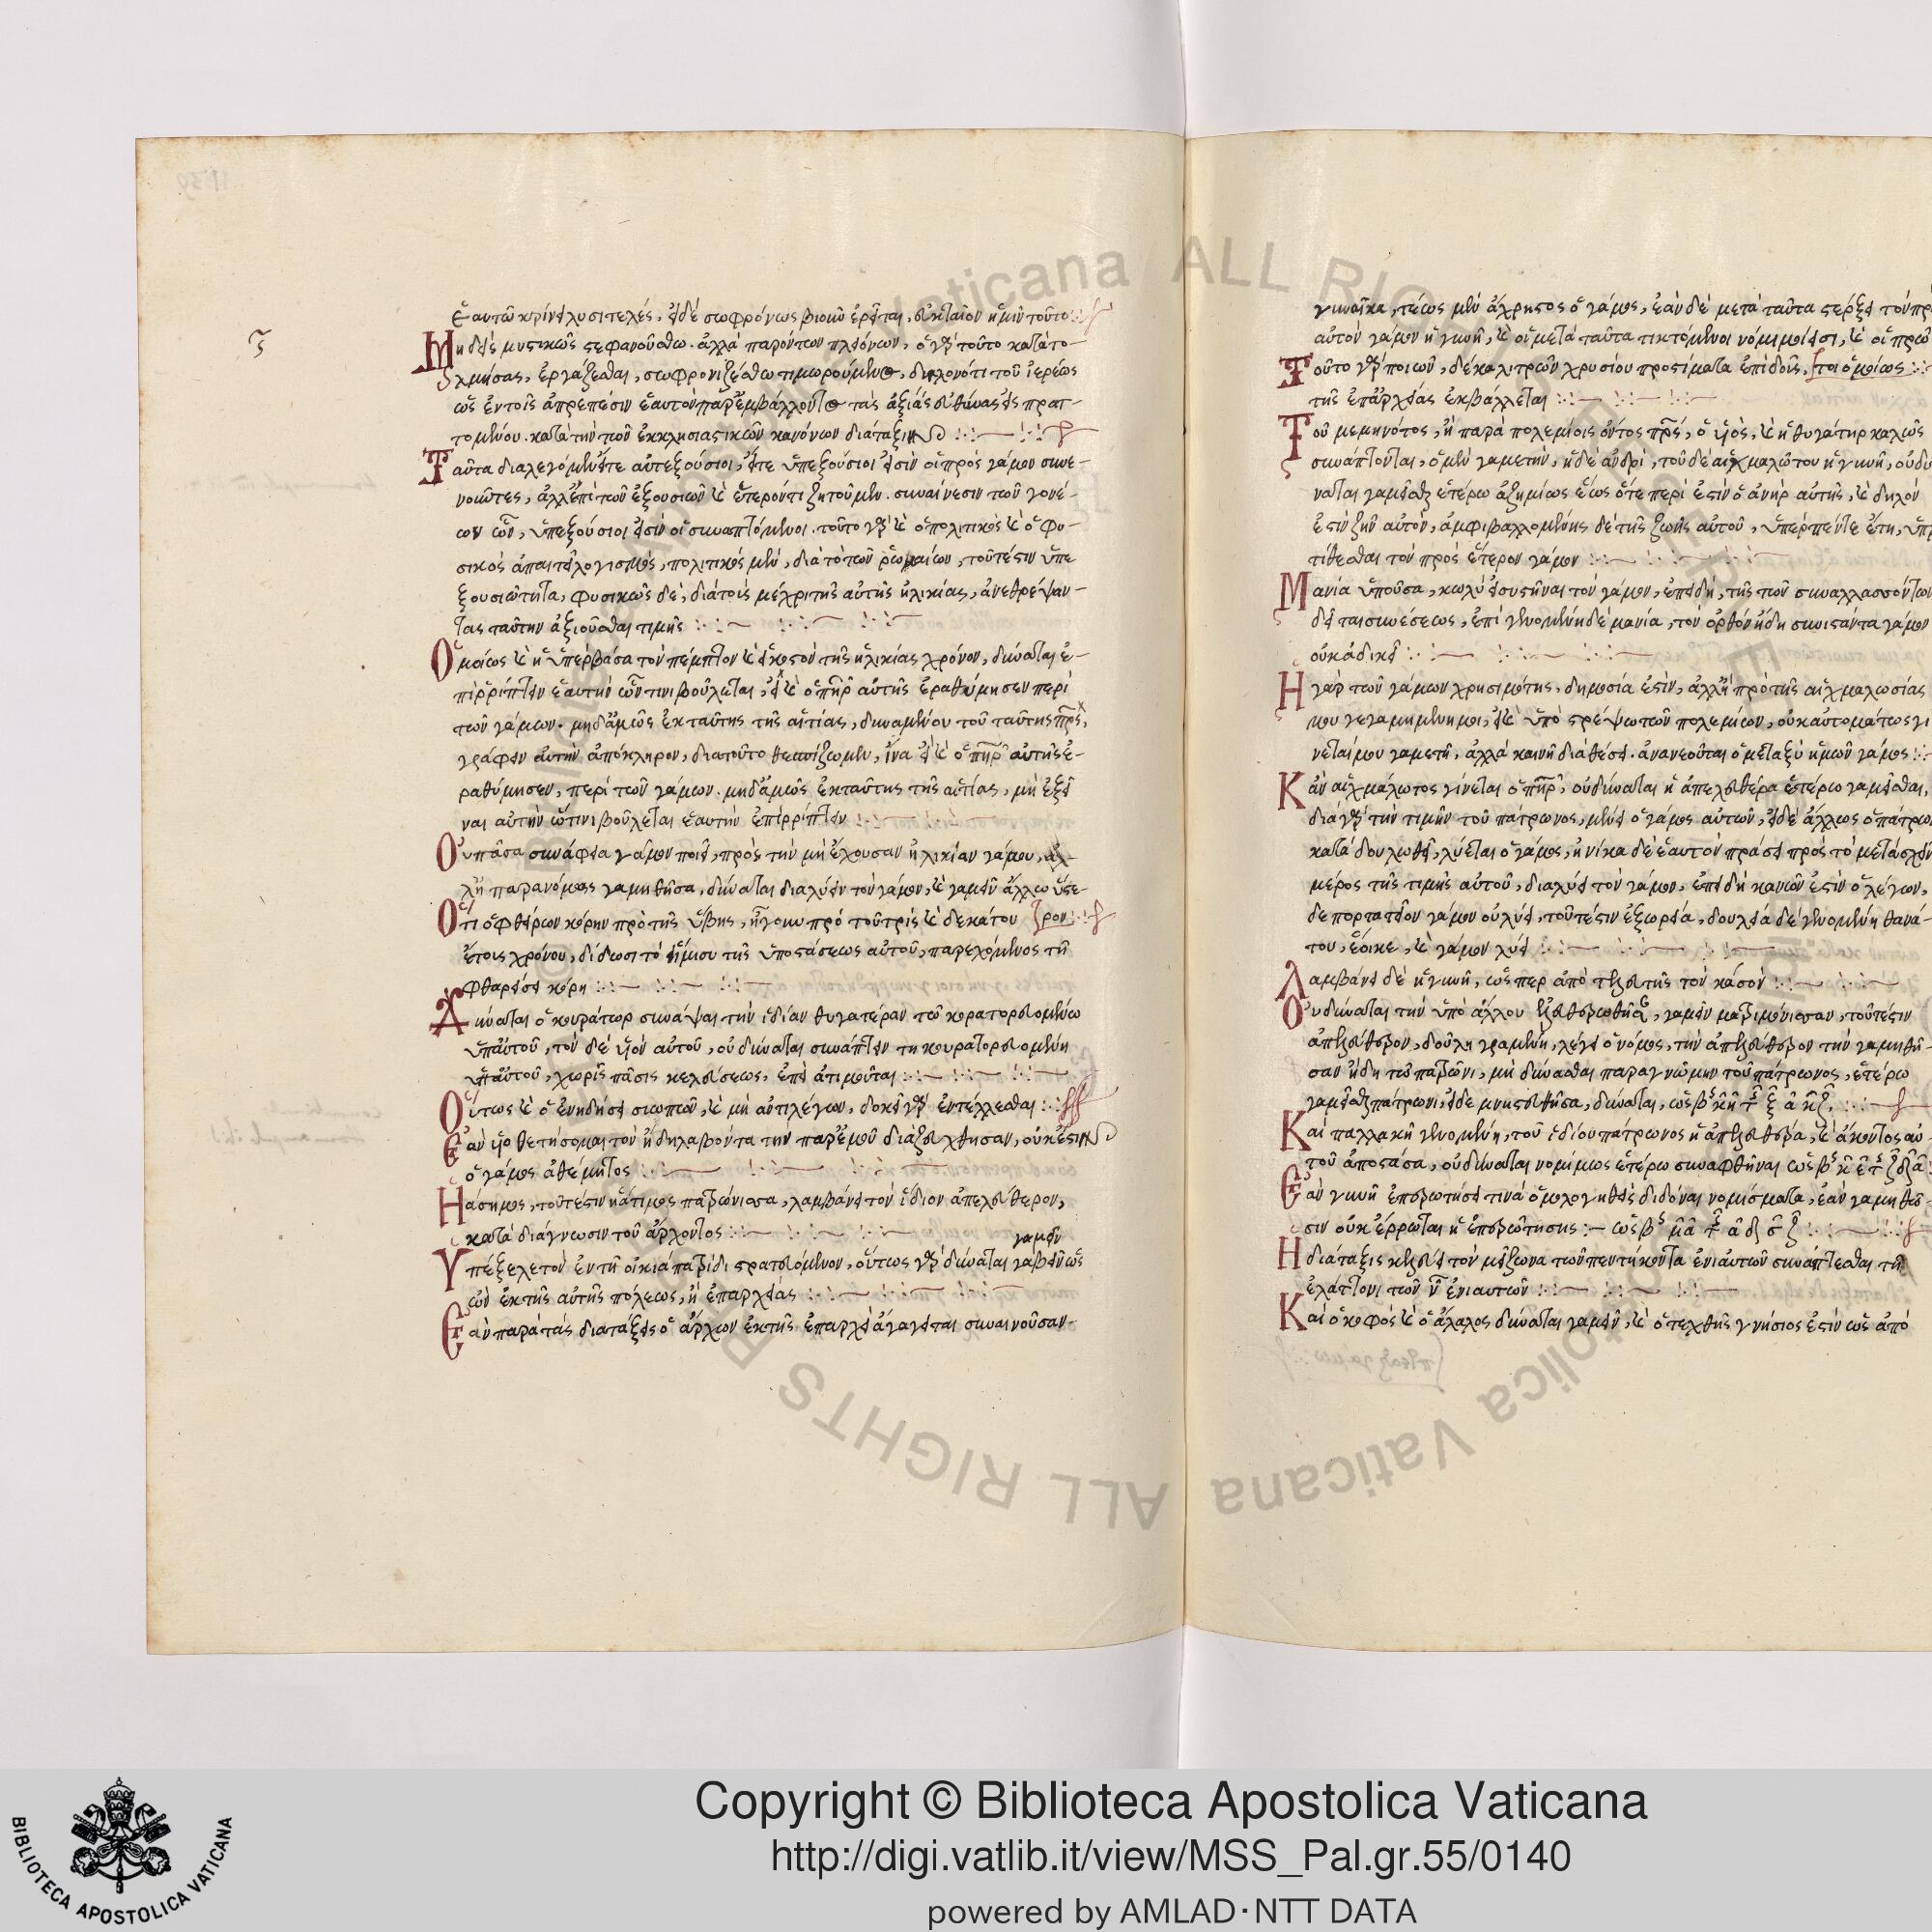 ἑαυτῶ κρίνει λυσιτελές, εἰ δὲ σωφρόνως βιοῦν ἐρεῖται, εὐκταῖον ἡμῖν τοῦτο
Μηδεὶς μυστικῶς στεφανούσθω. ἀλλὰ παρόντων πλειόνων, ὁ γὰρ τοῦτο κατατο
λμήσας, ἐργάζεσθαι, σωφρονιζέσθω τιμωρούμενος, δηλονότι τοῦ ἱερέως
ὡς ἐν τοῖς ἀπρεπέσιν ἑαυτὸν παρεμβάλλοντος τὰς ἀξίας εὐθύνας εἰσπρατ
τομένου. κατὰ τὴν τῶν ἐκκλησιαστικῶν κανόνων διάταξιν
Ταῦτα διαλεγόμενα εἴτε αὐτεξούσιοι, εἴτε ὑπεξούσιοι εἰσὶν οἱ πρὸς γάμον συνι
νοῶντες, ἀλλ' ἐπὶ τῶν ἐξουσιῶν καὶ ἕτερόν τι ζητοῦμεν. συναίνεσιν τῶν γονέ
ων ὧν, ὑπεξούσιοι εἰσὶν οἱ συναπτόμενοι. τοῦτο γὰρ καὶ ὁ πολιτικὸς καὶ ὁ φυ
σικὸς ἀπαιτεῖ λογισμός, πολιτικὸς μὲν, διὰ τὸ τῶν ῥωμαίων, τουτέστιν ὑπε
ξουσιότητα, φυσικῶς δὲ, διὰ τοῖς μέχρι τῆς αὐτῆς ἡλικίας, ἀνεθρέψαν
τας ταύτην ἀξιοῦσθαι τιμῆς
Ὁμοίως καὶ ἡ ὑπερβᾶσα τὸν πέμπτον καὶ εἰκοστὸν τῆς ἡλικίας χρόνον, δύναται ἐ
πιρρίπτειν ἑαυτὴν ᾧτινι βούλεται, εἰ καὶ ὁ πηρ αὐτῆς ἐραθύμησεν περὶ
τῶν γάμων. μηδαμῶς ἐκ ταύτης τῆς αἰτίας, δυναμένου τοῦ ταύτης πρς,
γράφειν αὐτὴν ἀπόκληρον, διὰ τοῦτο θεσπίζωμεν, ἵνα εἰ καὶ ὁ πηρ αὐτῆς ἐ
ραθύμησεν, περὶ τῶν γάμων. μηδαμῶς ἐκ ταύτης τῆς αἰτίας, μὴ ἐξεῖ
ναι αὐτὴν ᾧτινι βούλεται ἑαυτὴν ἐπιρρίπτειν
Οὐ πᾶσα συνάφεια γάμον ποιεῖ, πρὸς τὴν μὴ ἔχουσαν ἡλικίαν γάμου, ἀλ
λ' ἡ παρανόμως γαμηθῆσα, δύναται διαλύειν τὸν γάμον, καὶ γαμεῖν ἄλλω ὕστε
Ὅτι ὁ φθείρων κόρην πρὸ τῆς ἥβης, ἤγουν πρὸ τοῦ τρὶς καὶ δεκάτου ρον
ἔτοις χρόνου, δίδωσι τὸ ἥμισυ τῆς ὑποστάσεως αὐτοῦ, παρεχόμενος τῆ
φθαρείσει κόρη
Δύναται ὁ κουράτωρ συνάψαι τὴν ἰδίαν θυγατέραν τῶ κορατορευομένω
ὑπ' αὐτοῦ, τὸν δὲ υἱὸν αὐτοῦ, οὐ δύναται συνάπτειν τῆ κουρατορευομένη
ὑπ' αὐτοῦ, χωρὶς πάσις κελεύσεως, ἐπεὶ ἀτιμοῦται
Οὕτως καὶ ὁ ἐνηδήσει σιωπῶν, καὶ μὴ ἀντιλέγων, δοκεῖ γὰρ ἐντέλλεσθαι
Ἐὰν υἱοθετήσομαι τὸν ἤδη λαβόντα τὴν παρ' ἐμοῦ διαζευχθησαν, οὐκ ἔστιν
ὁ γάμος ἀθέμητος
Ἡ ἄσημος, τουτέστιν ἡ ἄτιμος πατρώνισσα, λαμβάνει τὸν ἴδιον ἀπελεύθερον,
κατὰ διάγνωσιν τοῦ ἄρχοντος
γαμεῖν
Ὑπέξελε τὸν ἐν τῆ οἰκία πατρίδι στρατευόμενον, οὗτως γὰρ δύναται
ὧν ἐκ τῆς αὐτῆς πόλεως, ἢ ἐπαρχίας
Ἐὰν παρὰ τὰς διατάξεις ὁ ἄρχων ἐκ τῆς ἐπαρχεὶ ἀγάγεται συναινοῦσαν
γυναῖκα, τέως μὲν ἄχρηστος ὁ γάμος, ἐὰν δὲ μετὰ ταῦτα στέρξει τὸν πρ
αὐτὸν γάμον ἡ γυνὴ, καὶ οἱ μετὰ ταῦτα τικτόμενοι νόμιμοί εἰσι, καὶ οἱ πρώ
Τοῦτο γὰρ ποιῶν, δέκα λιτρῶν χρυσίου προστίματα ἐπιδοὺς, τοι ὁμοίως
τῆς ἐπαρχείας ἐκβάλλεται
Τοῦ μεμηνότος, ἢ παρὰ πολεμίοις ὄντος πρς, ὁ υἱὸς, καὶ ἡ θυγάτηρ καλῶς
συνάπτονται, ὁ μὲν γαμετὴν, ἡ δὲ ἀνδρὶ, τοῦ δὲ αἰχμαλώτου ἡ γυνὴ, οὐ δύ
ναται γαμεῖσθαι ἑτέρω ἀζημίως ἕως ὅτε περίεστιν ὁ ἀνὴρ αὐτῆς, καὶ δῆλόν
ἐστὶν ζῆν αὐτὸν, ἀμφιβαλλομένης δὲ τῆς ζωῆς αὐτοῦ, ὑπὲρ πέντε ἔτη, ὑπ
τίθεσθαι τὸν πρὸς ἕτερον γάμον
Μανία ὑποῦσα, κωλύει συστῆναι τὸν γάμον, ἐπειδὴ, τῆς τῶν συναλλασσόντων
δεῖται συνέσεως, ἐπιγενομένη δὲ μανία, τὸν ὀρθὸν ἤδη συνιστάντα γάμον
οὐκ ἀδικεῖ
Ἡ γὰρ τῶν γάμων χρησιμότης, δημοσία ἐστὶν, ἀλλ' ἡ πρὸ τῆς αἰχμαλωσίας
μου γεγαμημένη μοι, εἰ καὶ ὑποστρέψω τῶν πολεμίων, οὐκ αὐτομάτως γι
νεταί μου γαμετή. ἀλλὰ καινῆ διαθέσει. ἀνανεοῦται ὁ μεταξὺ ἡμῶν γάμος
Κἂν αἰχμάλωτος γίνεται ὁ πηρ, οὐ δύναται ἡ ἀπελευθέρα ἑτέρω γαμεῖσθαι,
διὰ γὰρ τὴν τιμὴν τοῦ πάτρωνος, μένει ὁ γάμος αὐτῶν, εἰ δὲ ἄλλως ὁ πάτρω
καταδουλωθεῖ, λύεται ὁ γάμος, ἡνίκα δὲ ἑαυτὸν πράσει πρὸς τὸ μετασχεῖν
μέρος τῆς τιμῆς αὐτοῦ, διαλύει τὸν γάμον, ἐπειδὴ κανών ἐστιν ὁ λέγων,
δεπορτατείον γάμον οὐ λύει, τουτέστιν ἐξωρεία, δουλεία δὲ γενομένη θανά
του, ἔοικε, καὶ γάμον λύει
Λαμβάνει δὲ ἡ γυνὴ, ὥσπερ ἀπὸ τελευτῆς τὸν κάσον
Οὐ δύναται τὴν ὑπὸ ἄλλου ἐλευθερωθῆσα, γαμεῖν ματριμόνισσαν, τουτέστιν
ἀπελεύθερον, δούλη γραμένη, λέγει ὁ νόμος, τὴν ἀπελεύθερον τὴν γαμηθῆ
σαν ἤδη τῶ πάτρωνι, μὴ δύνασθαι παρὰ γνώμην τοῦ πάτρωνος, ἑτέρω
γαμεῖσθαι πάτρωνι, εἰ δὲ μνηστευθῆσα, δύναται, ὡς
Καὶ παλλακὴ γενομένη, τοῦ ἰδίου πάτρωνος ἡ ἀπελευθέρα, καὶ ἄκοντος αὐ
τοῦ ἀποστᾶσα, οὐ δύναται νομίμως ἑτέρω συναφθῆναι ὡς
Ἐὰν γυνὴ ἐπερωτήσει τινὰ ὁμολογηθεὶς διδόναι νομίσματα, ἐὰν γαμηθῶ
σιν οὐκ ἔρρωται ἡ ἐπερώτησης
Ἡ διάταξις κελεύει τὸν μείζωνα τῶν πεντήκοντα ἐνιαυτῶν συνάπτεσθαι τῆ
ἐλάττονι τῶν ν ἐνιαυτῶν
Καὶ ὁ κοφὸς καὶ ὁ ἄλαλος δύναται γαμεῖν, καὶ ὁ τεχθεὶς γνήσιος ἐστὶν ὡς ἀπὸ
Copyright © Biblioteca Apostolica Vaticana
http://digi.vatlib.it/view/MSS_Pal.gr.55/0140
powered by AMLAD·NTT DATA
BIBLIOTECA APOSTOLICA VATICANA